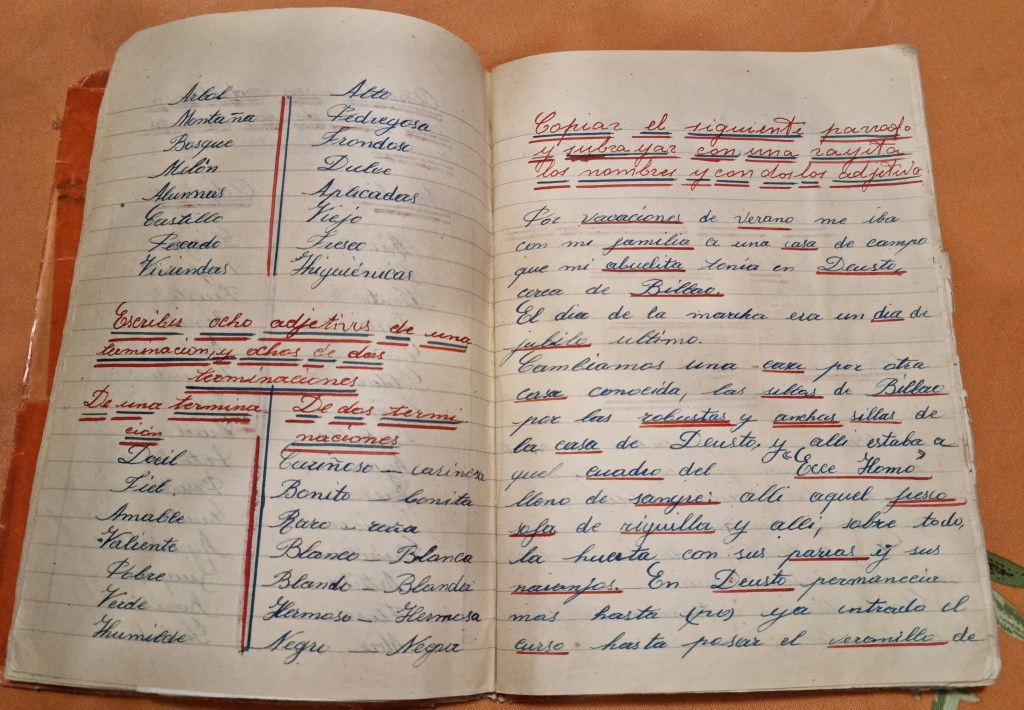 Árbol Alto
Montaña Pedregosa
Bosque Frondoso
Melón Dulce
Alumnas Aplicadas
Castillo Viejo
Pescado Fresco
Viviendas Higuiénicas
Escribir ocho adjetivos de una
terminación, y ochos de dos
terminaciones
De una termina
ción
De dos termi
naciones
Docil Cariñoso - carinosa
Fiel. Bonito - bonita
Amable Raro -
Valiente Blanco - Blanca
Pobre Blando - Blanda
Verde Hermoso - Hermosa
Humilde Negro - Negra
Copiar el siguiente parrado
y subrayar con una rayita
los nombres y con dos los adjetivo
Por vacaciones de verano me iba
con mi familia a una casa de campo
que mi abuelita tenia en Deusto,
cerca de Bilbao.
El dia de la marcha era un dia de
jubilo ultimo.
Cambiamos una casa por otra
casa conocida, las sillas de Bilbao
por las robustas y anchas sillas de
la casa de Deusto, y alli estaba a
quel cuadro del "Ecce Homo"
lleno de sangre; alli aquel fresco
sofa de riguilla y alli, sobre todo,
la huerta con sus parras y sus
naranjos. En Deusto permanecia
mas hasta (no) ya intrado el
curso hasta pasar el veranillo de